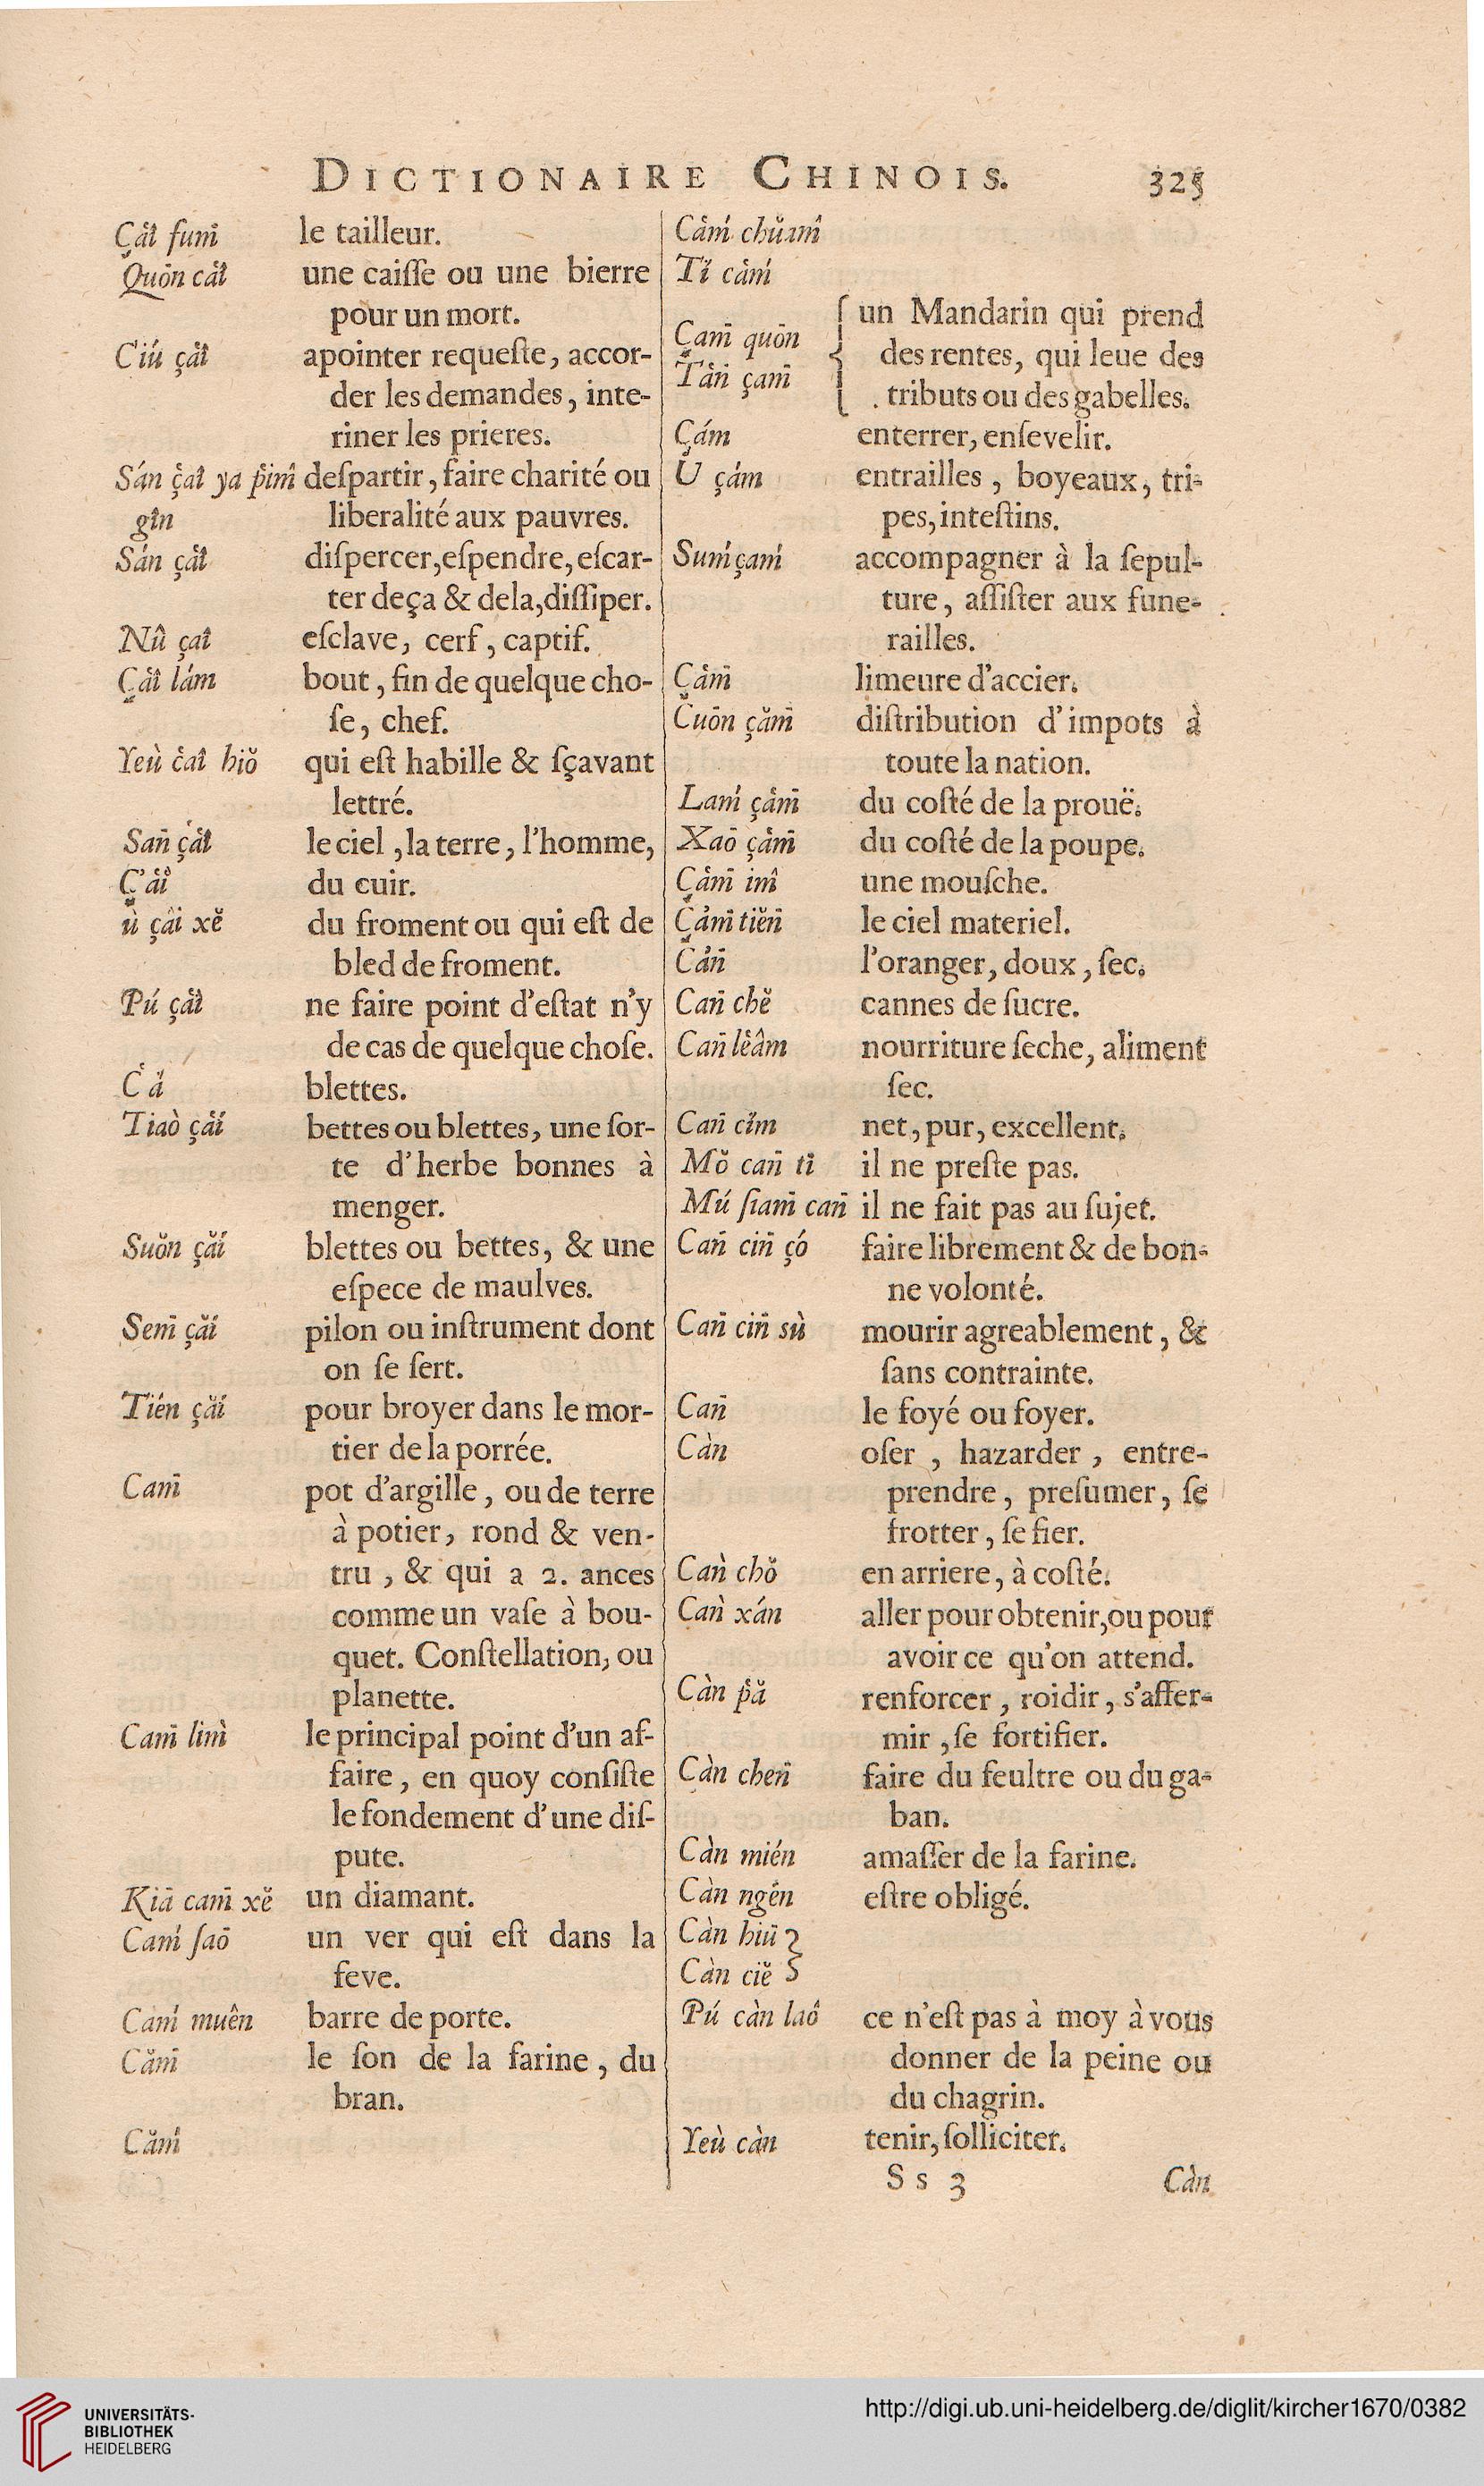 DICTIONAIRE CHINOIS. 325
Çâî fum̄ le tailleur.
Quōn câî une caiſſe ou une bierre
pour un mort.
Ciú çâî apointer requeſte, accor-
der les demandes, inte-
riner les prieres.
Sán çaî ya pim̂ deſpartir, faire charité ou
gîn liberalité aux pauvres.
Sán çâî diſpercer, eſpendre, eſcar-
ter deça & dela, diſſiper.
Nû çaî eſclave, cerf, captif.
Çâî lám bout, fin de quelque cho-
ſe, chef.
Yeù c̓aî hiŏ qui eſt habille & ſçavant
lettré.
San̄ çâî le ciel, la terre, l'homme,
Ç'âi du cuir.
ù çâi xĕ du froment ou qui eſt de
bled de froment.
Pú çâî ne faire point d'eſtat n'y
de cas de quelque choſe.
blettes.
Tiaò çǎí bettes ou blettes, une ſor-
te d'herbe bonnes à
menger.
Suŏn çǎí blettes ou bettes, & une
eſpece de maulves.
Sem̄ çǎí pilon ou inſtrument dont
on ſe ſert.
Tién çǎí pour broyer dans le mor-
tier de la porrée.
Cam̄ pot d'argille, ou de terre
à potier, rond & ven-
tru, & qui a 2. ances
comme un vaſe à bou-
quet. Conſtellation, ou
planette.
Cam̄ lim̀ le principal point d'un af-
faire, en quoy conſiſte
le fondement d'une diſ-
pute.
Kiā cam̄ xĕ un diamant.
Cam̄ ſaō un ver qui eſt dans la
feve.
Cam̄ muên barre de porte.
Căm̄ le ſon de la farine, du
bran.
Căḿ
Cǎḿ chŭam̂
Tǐ cåḿ
Çam̄ quōn { un Mandarin qui prend
des rentes, qui leue des
Tân̄ çam̄ tributs ou des gabelles.
Çám enterrer, enſevelir.
Ù çám entrailles, boyeaux, tri-
pes, inteſtins.
Suḿ çaḿ accompagner à la ſepul-
ture, aſſiſter aux fune-
railles.
Çåm̄ limeure d'accier.
Cuōn çăm̄ diſtribution d'impots à
toute la nation.
Laḿ çåm̄ du coſté de la prouë.
Xaō çåm̄ du coſté de la poupe.
Çåm̄ im̂ une mouſche.
Çåm̄ tiēn̄ le ciel materiel.
Cån̄ l'oranger, doux, ſec.
Can̄ chĕ cannes de ſucre.
Can̄ lêâm nourriture ſeche, aliment
ſec.
Can̄ cǐm net, pur, excellent.
Mŏ can̄ ti il ne preſte pas.
Mú ſiam̄ can̄ il ne fait pas au ſujet.
Can̄ cin̄ çó faire librement & de bon-
ne volonté.
Can̄ cin̄ sù mourir agreablement, &
ſans contrainte.
Can̄ le foyé ou foyer.
Càn oſer, hazarder, entre-
prendre, preſumer, ſe
frotter, ſe fier.
Càn chŏ en arriere, à coſté.
Càn xán aller pour obtenir, ou pour
avoir ce qu'on attend.
Càn p̓ǎ renforcer, roidir, s'affer-
mir, ſe fortifier.
Càn chen̄ faire du feultre ou du ga-
ban.
Càn mién amaſſer de la farine.
Càn ngēn eſtre obligé.
Càn hiū }
Càn ciĕ }
Pú càn laô ce n'eſt pas à moy à vous
donner de la peine ou
du chagrin.
Yeù càn tenir, ſolliciter.
S s 3 Càn
UNIVERSITÄTS-
BIBLIOTHEK
HEIDELBERG
http://digi.ub.uni-heidelberg.de/diglit/kircher1670/0382